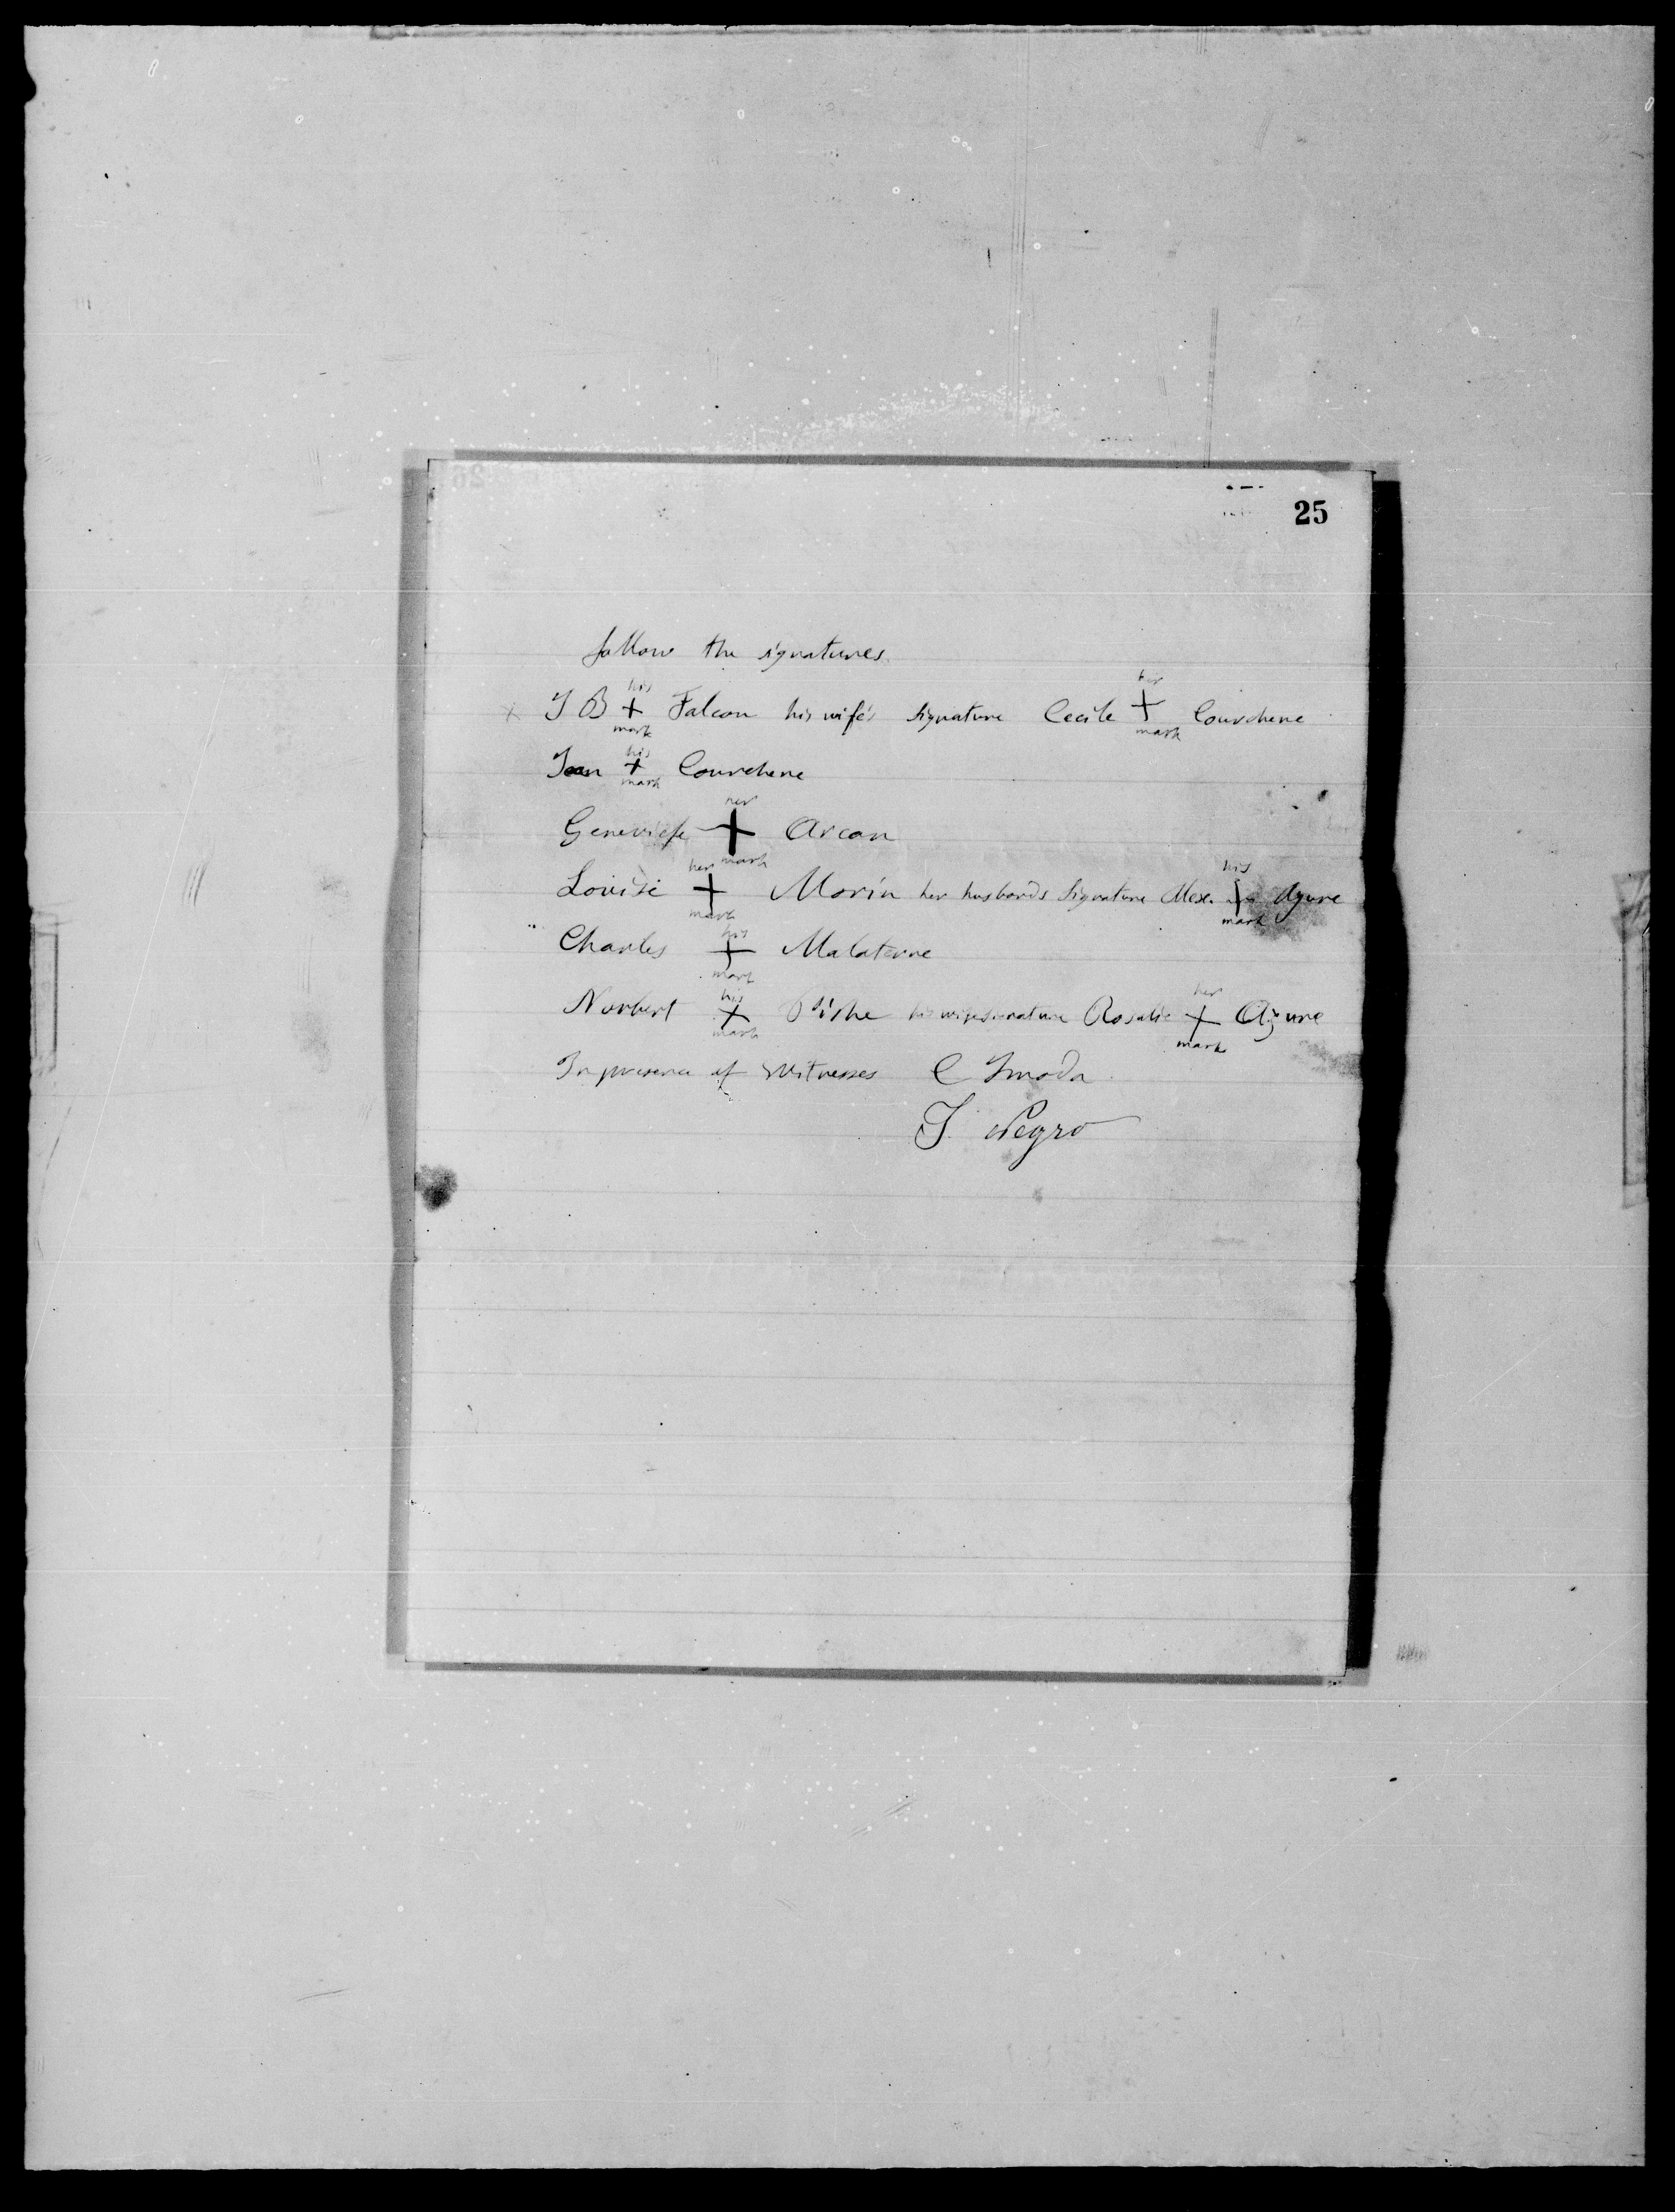 25
follow the signatures
x J B his + mark Falcon his wife's signature Cecile her + mark Courchene
Jean his + mark Courchene
Geneviefe her + mark Arcan
Louise her + mark Morin her husbands signature Alex. his + mark Azure
Charles his + mark Malaterre
Norbert his + mark his wife signature Rosalie her + mark Azure
In presence of witnesses C Imoda
J. Negro